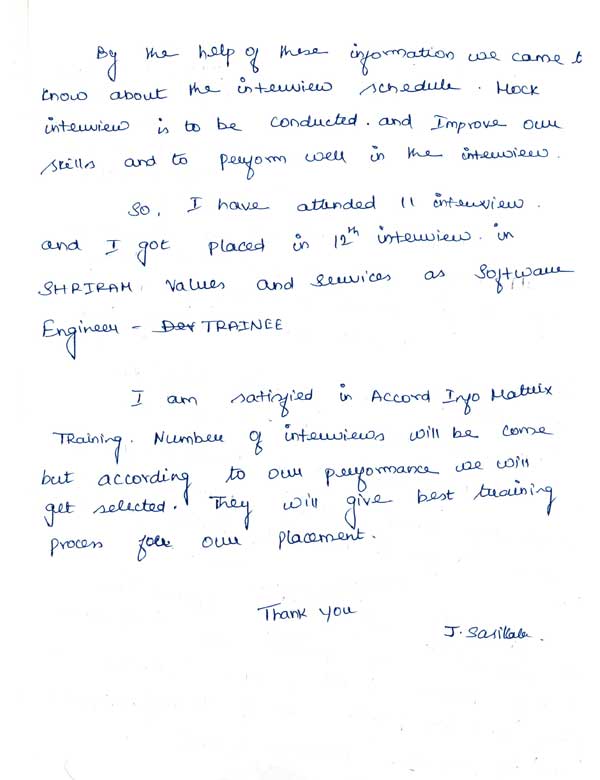 By the help of these information we came t
know about the interview schedule. Mock
interview is to be conducted. and Improve our
skills and to perform well in the interview.
So, I have attended 11 interview.
and I got placed in 12th interview. in
SHRIRAM. Values and Services as Software
Engineer - Dev TRAINEE
I am satisfied in Accord Info Matrix
TRaining. Number of interviews will be come
but according to our performance we will
get selected. They will give best training
process for our placement.
Thank you
J. Sasikala.